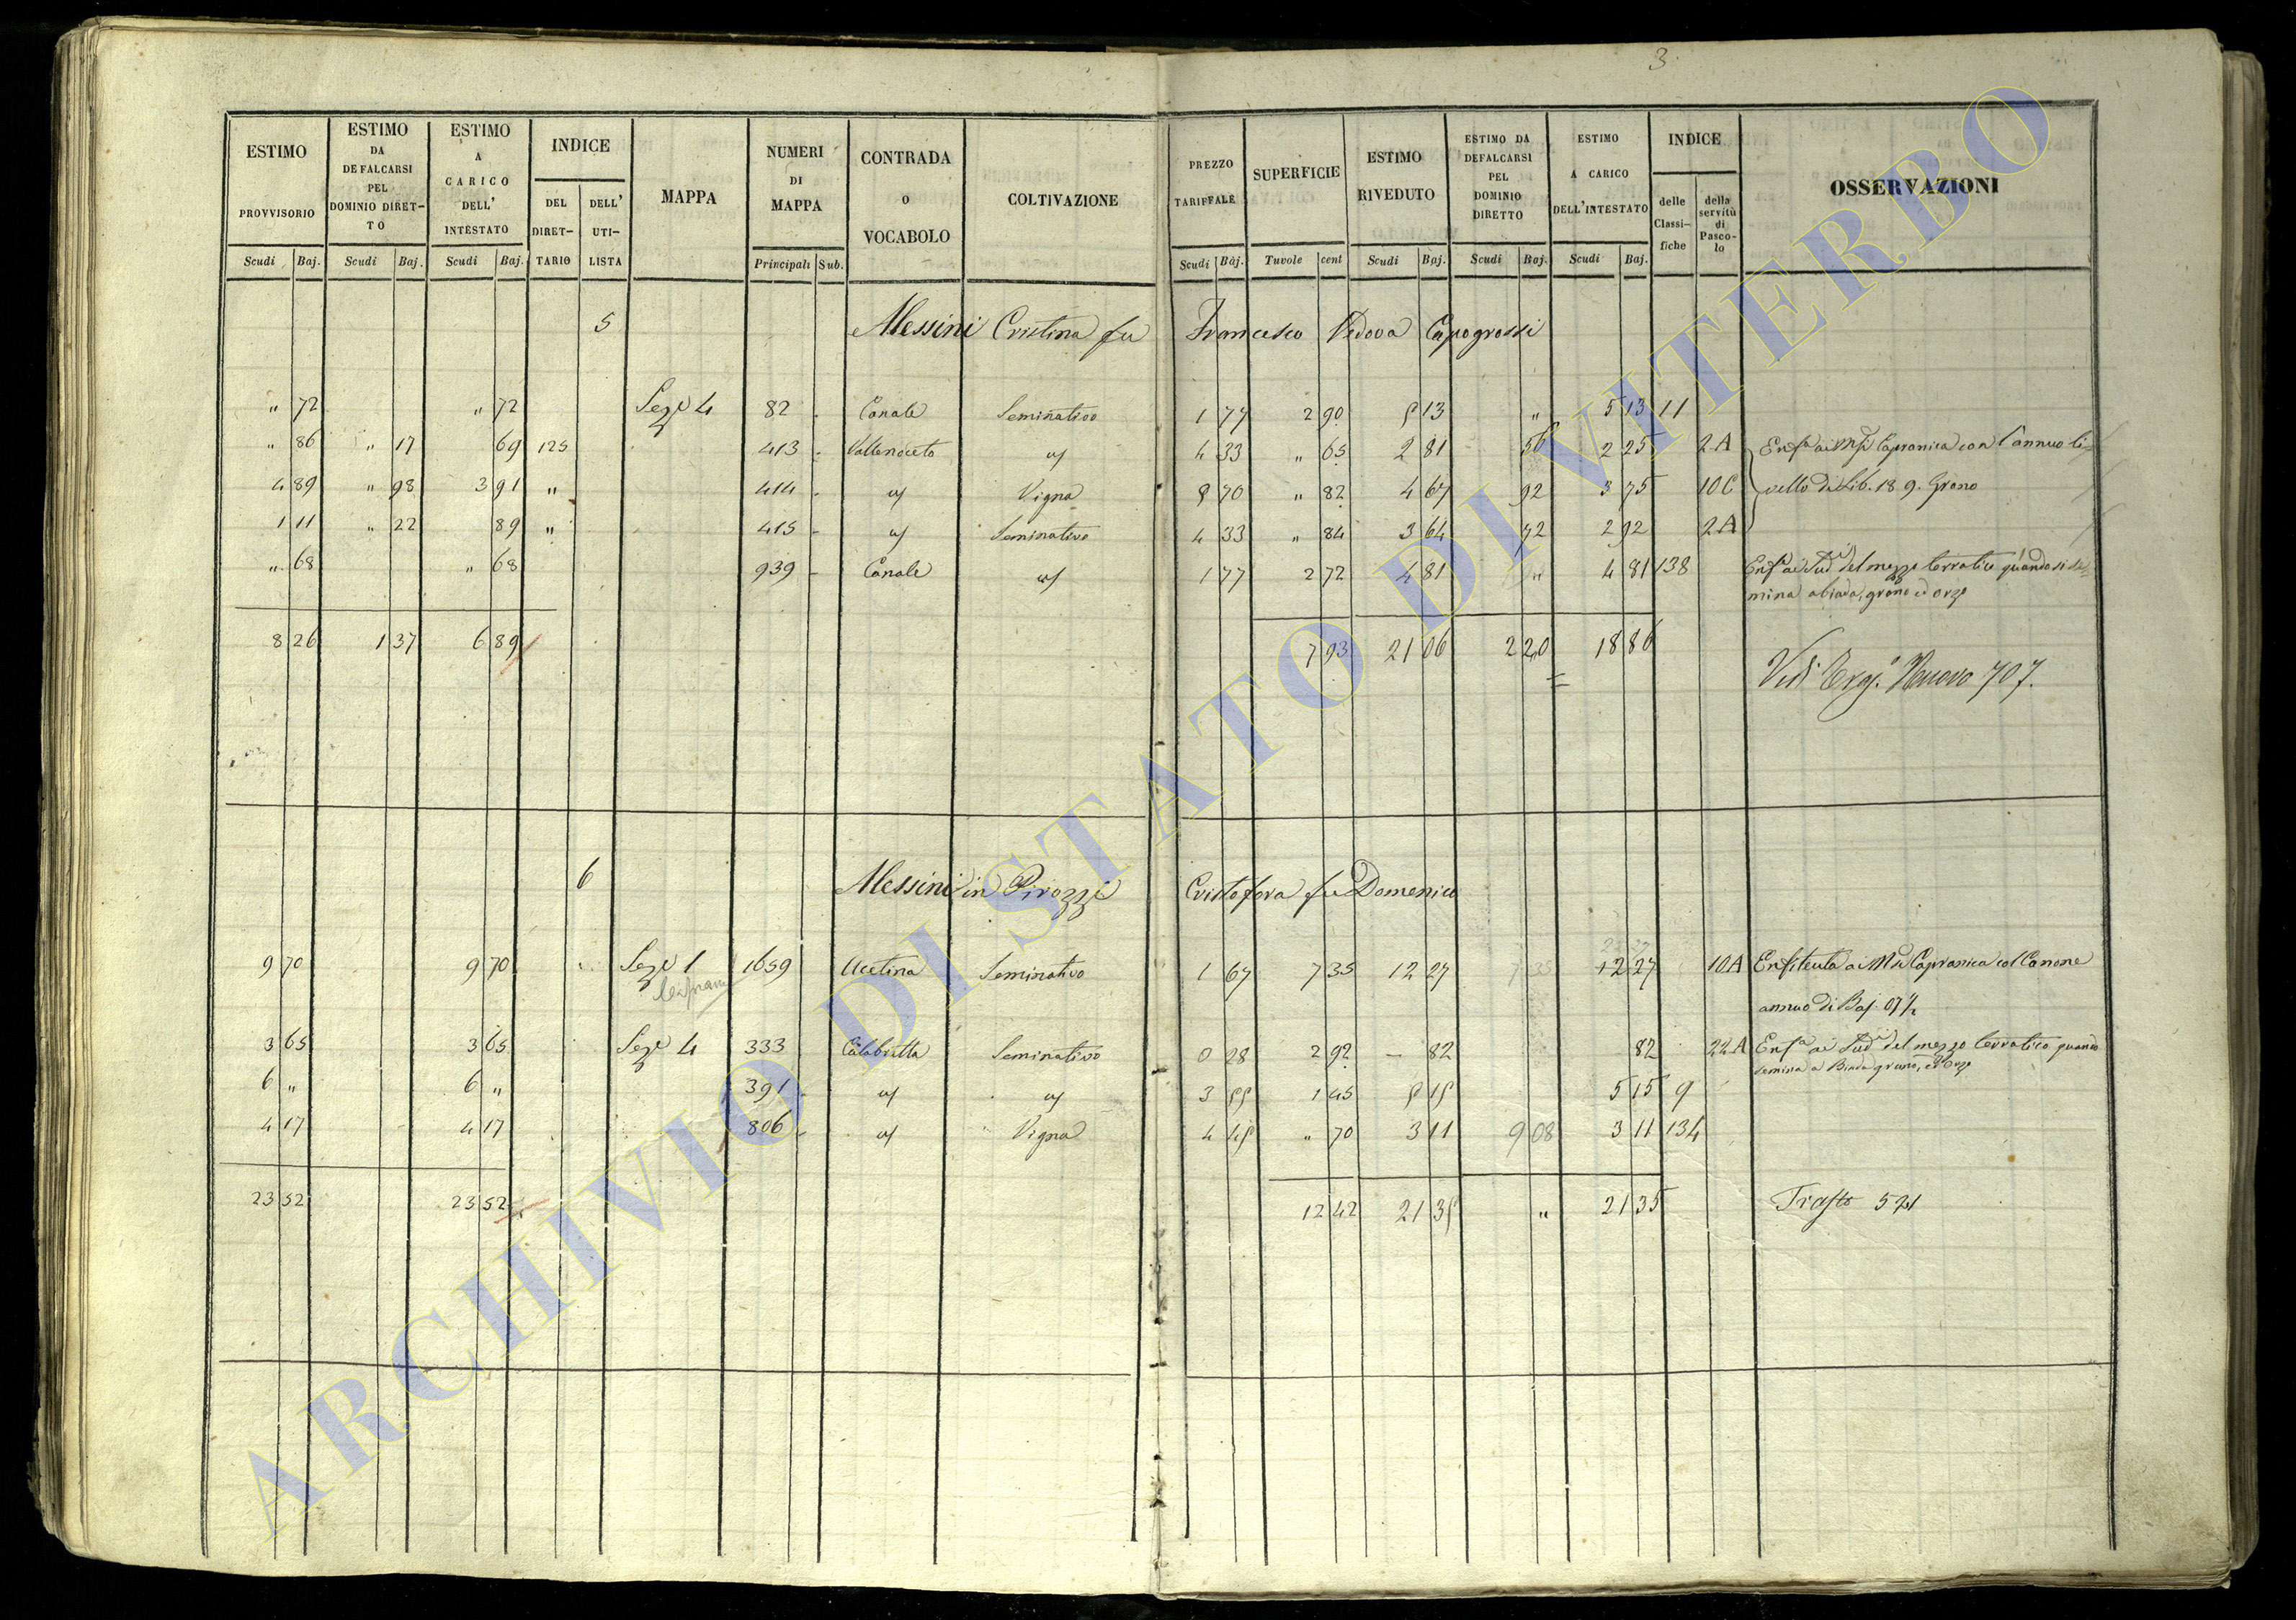 3
ESTIMO PROVVISORIO | ESTIMO DA DEFALCARSI PEL DOMINIO DIRETTO | ESTIMO A CARICO DELL' INTESTATO | INDICE DEL DIRETTARIO | DELL' UTILISTA | MAPPA | NUMERI DI MAPPA | CONTRADA O VOCABOLO | COLTIVAZIONE | PREZZO TARIFFALE | SUPERFICIE | ESTIMO RIVEDUTO | ESTIMO DA DEFALCARSI PEL DOMINIO DIRETTO | ESTIMO A CARICO DELL'INTESTATO | INDICE delle Classifiche | della servitù di Pascolo | OSSERVAZIONI
Scudi | Baj. | Scudi | Baj. | Scudi | Baj. | Principali | Sub. | Scudi | Baj. | Tuvole | cent | Scudi | Baj. | Scudi | Baj. | Scudi | Baj.
5 Alessini Cristina fu Francesco Vedova Capogrossi
" 72 " 72 Sezе 4 82 - Canale Seminativo 1 77 2 90 5 13 " 5 13 11
" 86 " 17 69 125 413 - Vallenoceto 4 33 " 65 2 81 56 2 25 2 A Enfa ai Capranica con l'annuo li-
4 89 " 98 3 91 " 414 - Vigna 5 70 " 82 4 67 92 3 75 10 C vello di Lib. 18 9. Grano
1 11 " 22 89 " 415 - Seminativo 4 33 " 84 3 64 72 2 92 2 A
" 68 " 68 939 - Canale 1 77 2 72 4 81 " 4 81 138 Enfa ai del mezzo terratico quando si se-
mina a biada, grano ed orzo
8 26 1 37 6 89 7 93 21 06 2 20 18 86
Vedi Nuovo 707.
6 Alessini in Pirozzi Cristofora fu Domenico
9 70 9 70 Seze 1 1659 Ucetina Seminativo 1 67 7 35 12 27 12 27 10 A Enfiteuta ai Capranica col Canone
annuo di Baj. 07½
3 65 3 65 Seze 4 333 Calabretta Seminativo 0 28 2 92 - 82 82 22 A Enfa ai del mezzo terratico quando
semina a Biada grano, ed Orzo
6 " 6 " 391 3 55 1 45 5 15 5 15 9
4 17 4 17 806 - Vigna 4 45 " 70 3 11 9 08 3 11 134
23 52 23 52 12 42 21 35 " 21 35 Trasfto 521
ARCHIVIO DI STATO DI VITERBO